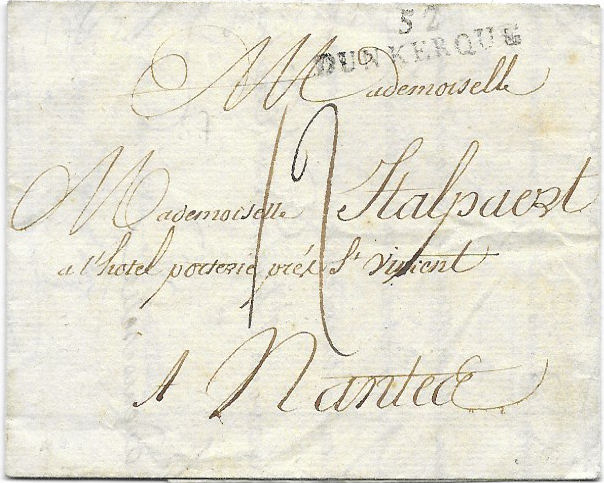 52
DUNKERQUE
Mademoiselle
Mademoiselle Stalpaert
a l'hotel porterie prés St Vincent
A Nantes
12